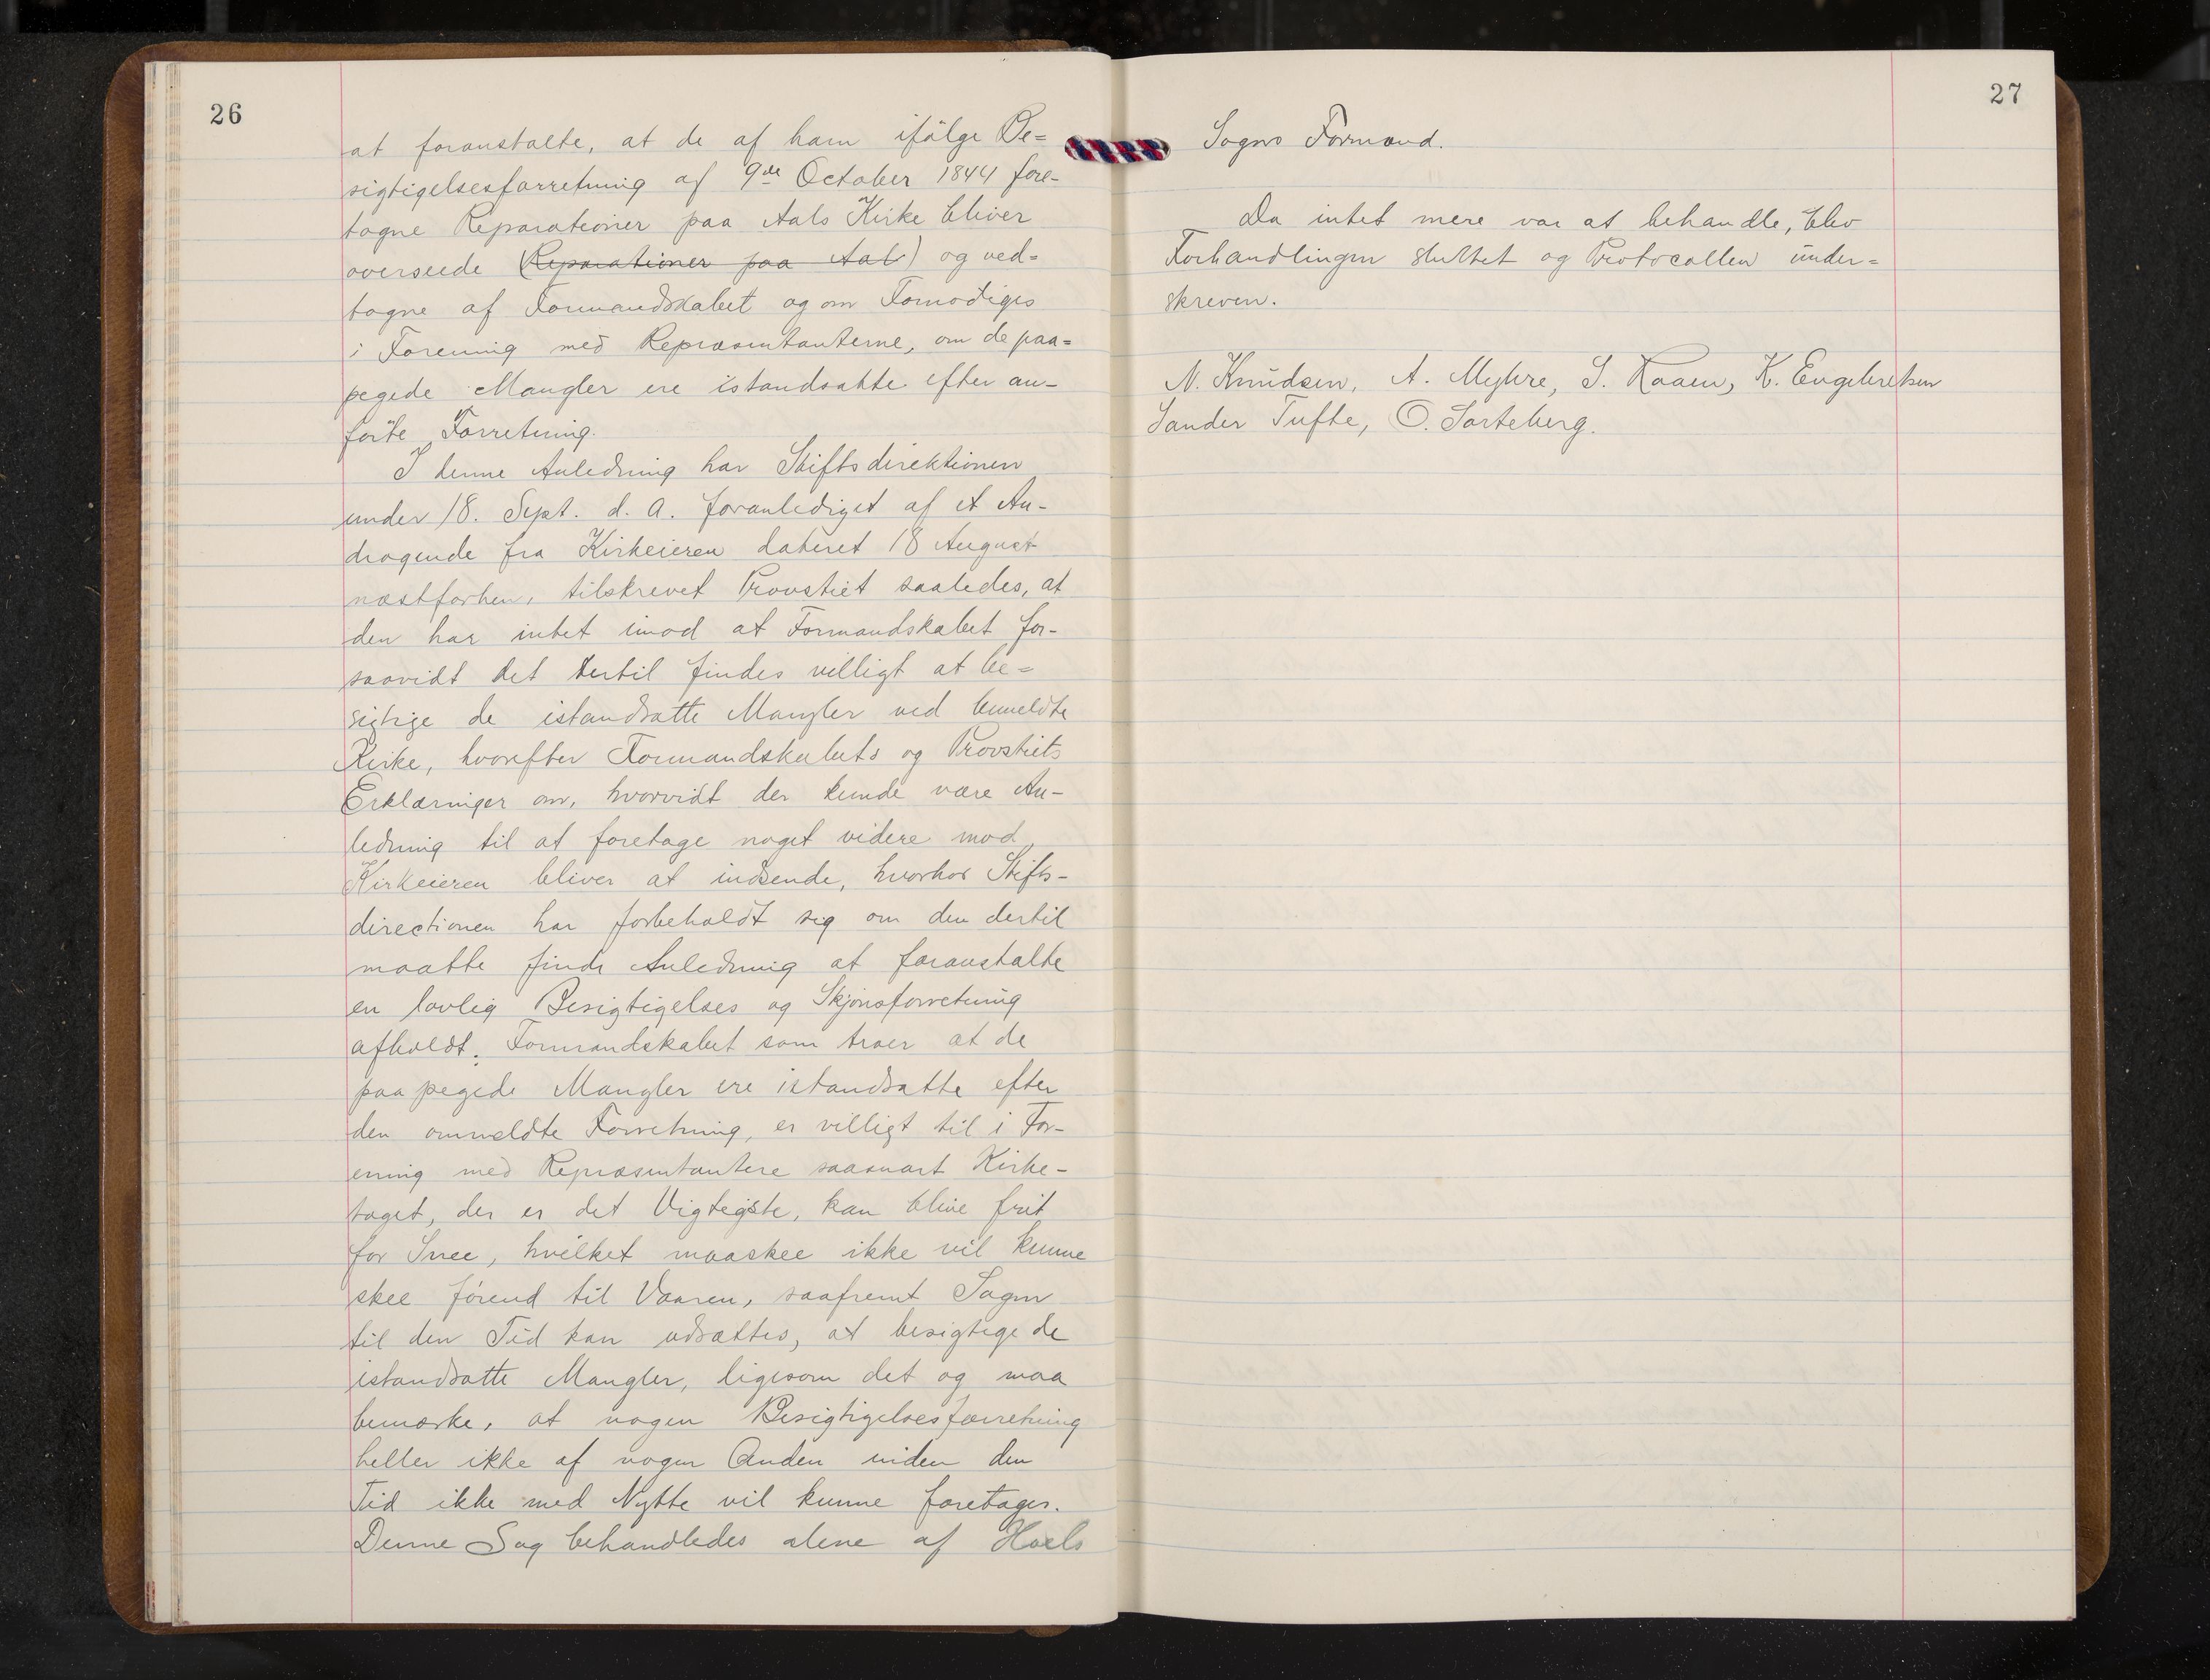 26
at foranstalte, at de af ham ifölge Be=
sigtigelsesforretning af 9de October 1844 fore-
tagne Reparationer paa Aals Kirke bliver
overseede (Reparationer paa Aal) og ved=
tagne af Formandskabet og om Fornodiges
i Forening med Repræsentanterne, om de paa=
pegede Mangler ere istandsatte efter an-
förte Forretning.
I denne Anledning har Stiftsdirektionen
under 18. Sept. d. A. foranlediget af et An-
dragende fra Kirkeieren dateret 18 August
næstforhen, tilskrevet Provstiet saaledes, at
den har intet imod at Formandskabet for-
saavidt det dertil findes villigt at be=
sigtige de istandsatte Mangler ved bemeldte
Kirke, hvorefter Formandskabets og Provstiets
Erklæringer om, hvorvidt der kunde være An-
ledning til at foretage noget videre mod
Kirkeieren bliver at indsende, hvorhos Stifts-
directionen har forbeholdt sig om den dertil
maatte finde Anledning at foranstalte
en lovlig Besigtigelses og Skjönsforretning
afholdt. Formandskabet som troer at de
paapegede Mangler ere istandsatte efter
den ommeldte Forretning, er villigt til i For-
ening med Repræsentantere saasnart Kirke-
taget, der er det Vigtigste, kan blive frit
for Snee, hvilket maaskee ikke vil kunne
skee förend til Vaaren, saafremt Sagen
til den Tid kan udsættes, at besigtige de
istandsatte Mangler, ligesom det og maa
bemærke, at nogen Besigtigelsesforretning
heller ikke af nogen Anden inden den
Tid ikke med Nytte vil kunne foretages.
Denne Sag behandledes alene af Hols
27
Sogns Formænd.
Da intet mere var at behandle, blev
Forhandlingen sluttet og Protocollen under=
skreven.
N. Knudsen, A. Myhre, S. Raaen, K. Engebretsen
Sander Tufte, O. Sorteberg.